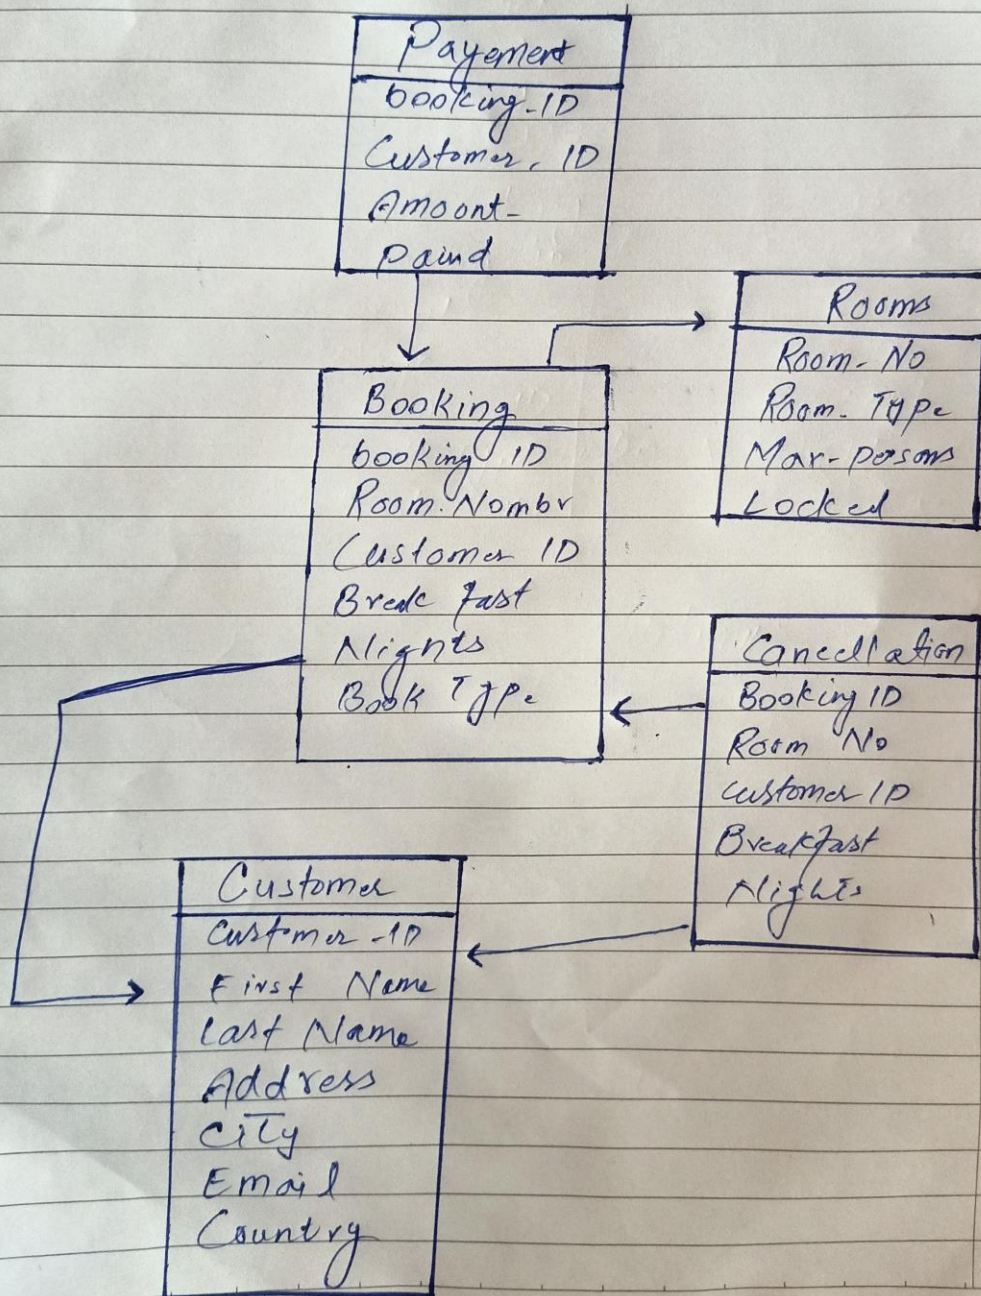 Payement
booking-ID
Customer. ID
Amoont-
paind
Rooms
Room-No
Room-Type
Max-persons
Locked
Booking
booking ID
Room.Nombr
Customer ID
Break fast
Nights
Book Type
Cancellation
Booking ID
Room No
customer ID
Breakfast
Nights
Customer
customer-ID
First Name
Last Name
Address
City
Email
Country